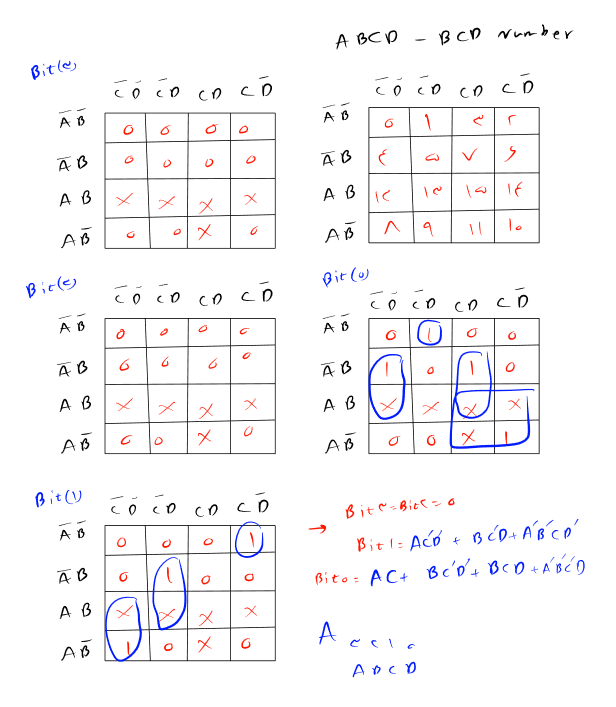 A B C D - BCD number
Bit(۳)
C̅ D̅ C̅ D C D C D̅
A̅ B̅ 0 0 0 0
A̅ B 0 0 0 0
A B X X X X
A B̅ 0 0 X 0
C̅ D̅ C̅ D C D C D̅
A̅ B̅ ۰ ۱ ۳ ۲
A̅ B ۴ ۵ ۷ ۶
A B ۱۲ ۱۳ ۱۵ ۱۴
A B̅ ۸ ۹ ۱۱ ۱۰
Bit(۲)
C̅ D̅ C̅ D C D C D̅
A̅ B̅ 0 0 0 0
A̅ B 0 0 0 0
A B X X X X
A B̅ 0 0 X 0
Bit(0)
C̅ D̅ C̅ D C D C D̅
A̅ B̅ 0 1 0 0
A̅ B 1 0 1 0
A B X X X X
A B̅ 0 0 X 1
Bit(1)
C̅ D̅ C̅ D C D C D̅
A̅ B̅ 0 0 0 1
A̅ B 0 1 0 0
A B X X X X
A B̅ 1 0 X 0
→ Bit۳=Bit۲=0
Bit1= AC'D' + BC'D+A'B'CD'
Bit0= AC+ BC'D'+BCD+A'B'C'D
A